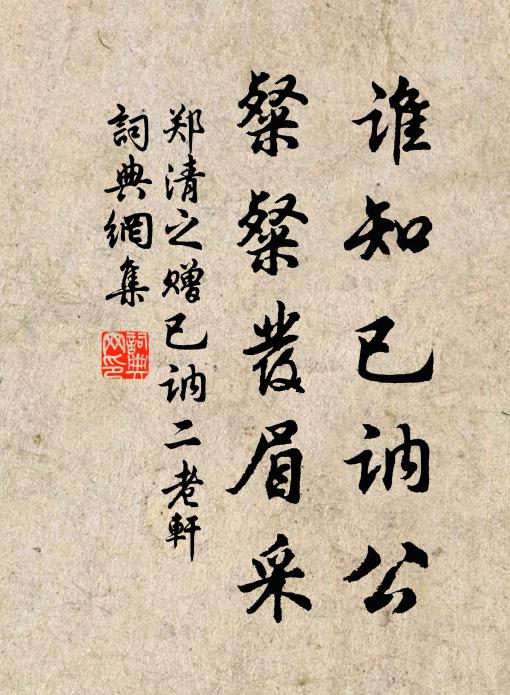 谁知已讷公
粲粲發眉采
郑清之赠已讷二老軒
詞典網集
詞典
网印